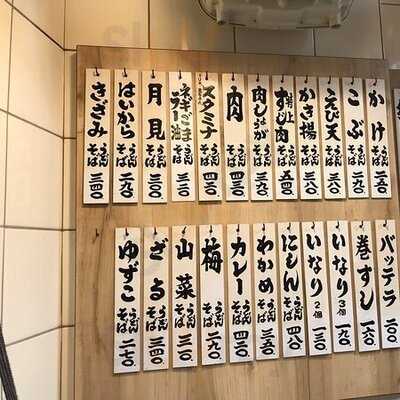 かけ うどん そば 二五〇.
こぶ うどん そば 二九〇.
えび天 うどん そば 三八〇.
かき揚 うどん そば 三八〇.
特上すじ肉 うどん そば 五四〇.
肉しょうが うどん そば 三九〇.
肉 うどん そば 三四〇.
スタミナ うどん そば 四三〇.
ネギごまラー油 うどん そば 三三〇
月見 うどん そば 三〇〇.
はいから うどん そば 二九〇.
きざみ うどん そば 三四〇.
バッテラ 二〇〇.
巻すし 一六〇.
いなり 3個 一九〇.
いなり 2個 一三〇
にしん うどん そば 四八〇.
わかめ うどん そば 三五〇.
カレー うどん そば 四三〇.
梅 うどん そば 二九〇.
山菜 うどん そば 三一〇.
ざる うどん そば 三四〇.
ゆずこ うどん そば 二七〇.